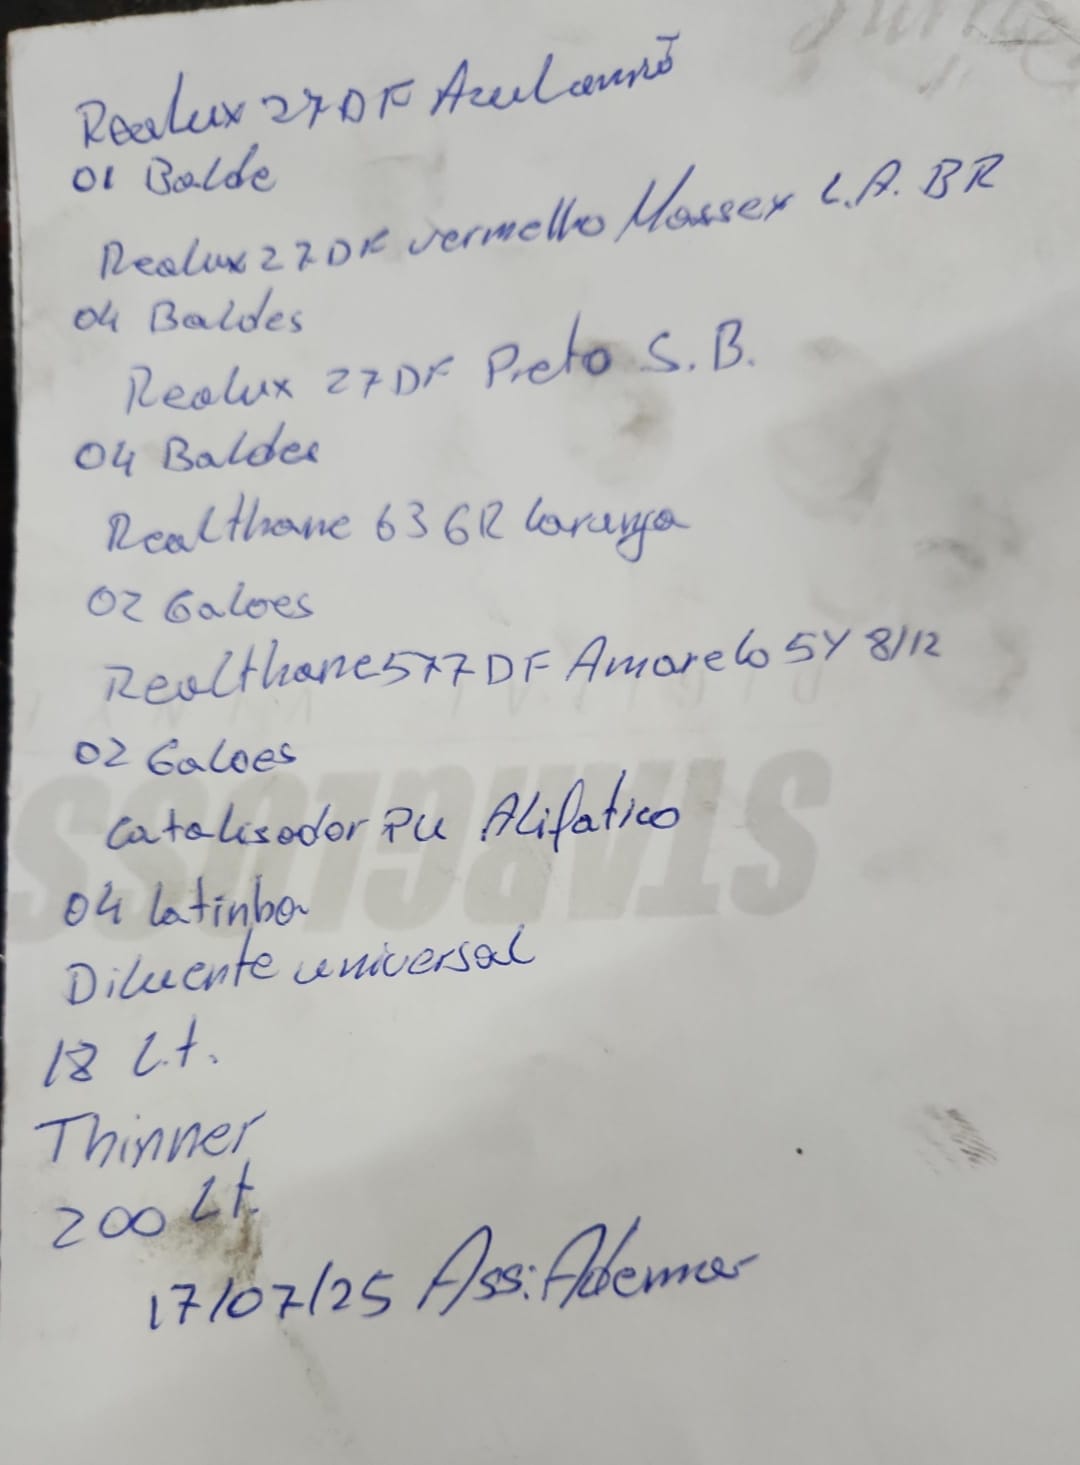 Realux 27DF Azul
01 Balde
Realux 27DF vermelho Massex L.A. BR
04 Baldes
Realux 27DF Preto S.B.
04 Baldes
Realthane 636R laranja
02 Galoes
Realthane 577DF Amarelo 5Y 8/12
02 Galoes
Catalisador PU Alifatico
04 latinha
Diluente universal
18 Lt.
Thinner
200 Lt.
17/07/25 Ass: Ademar